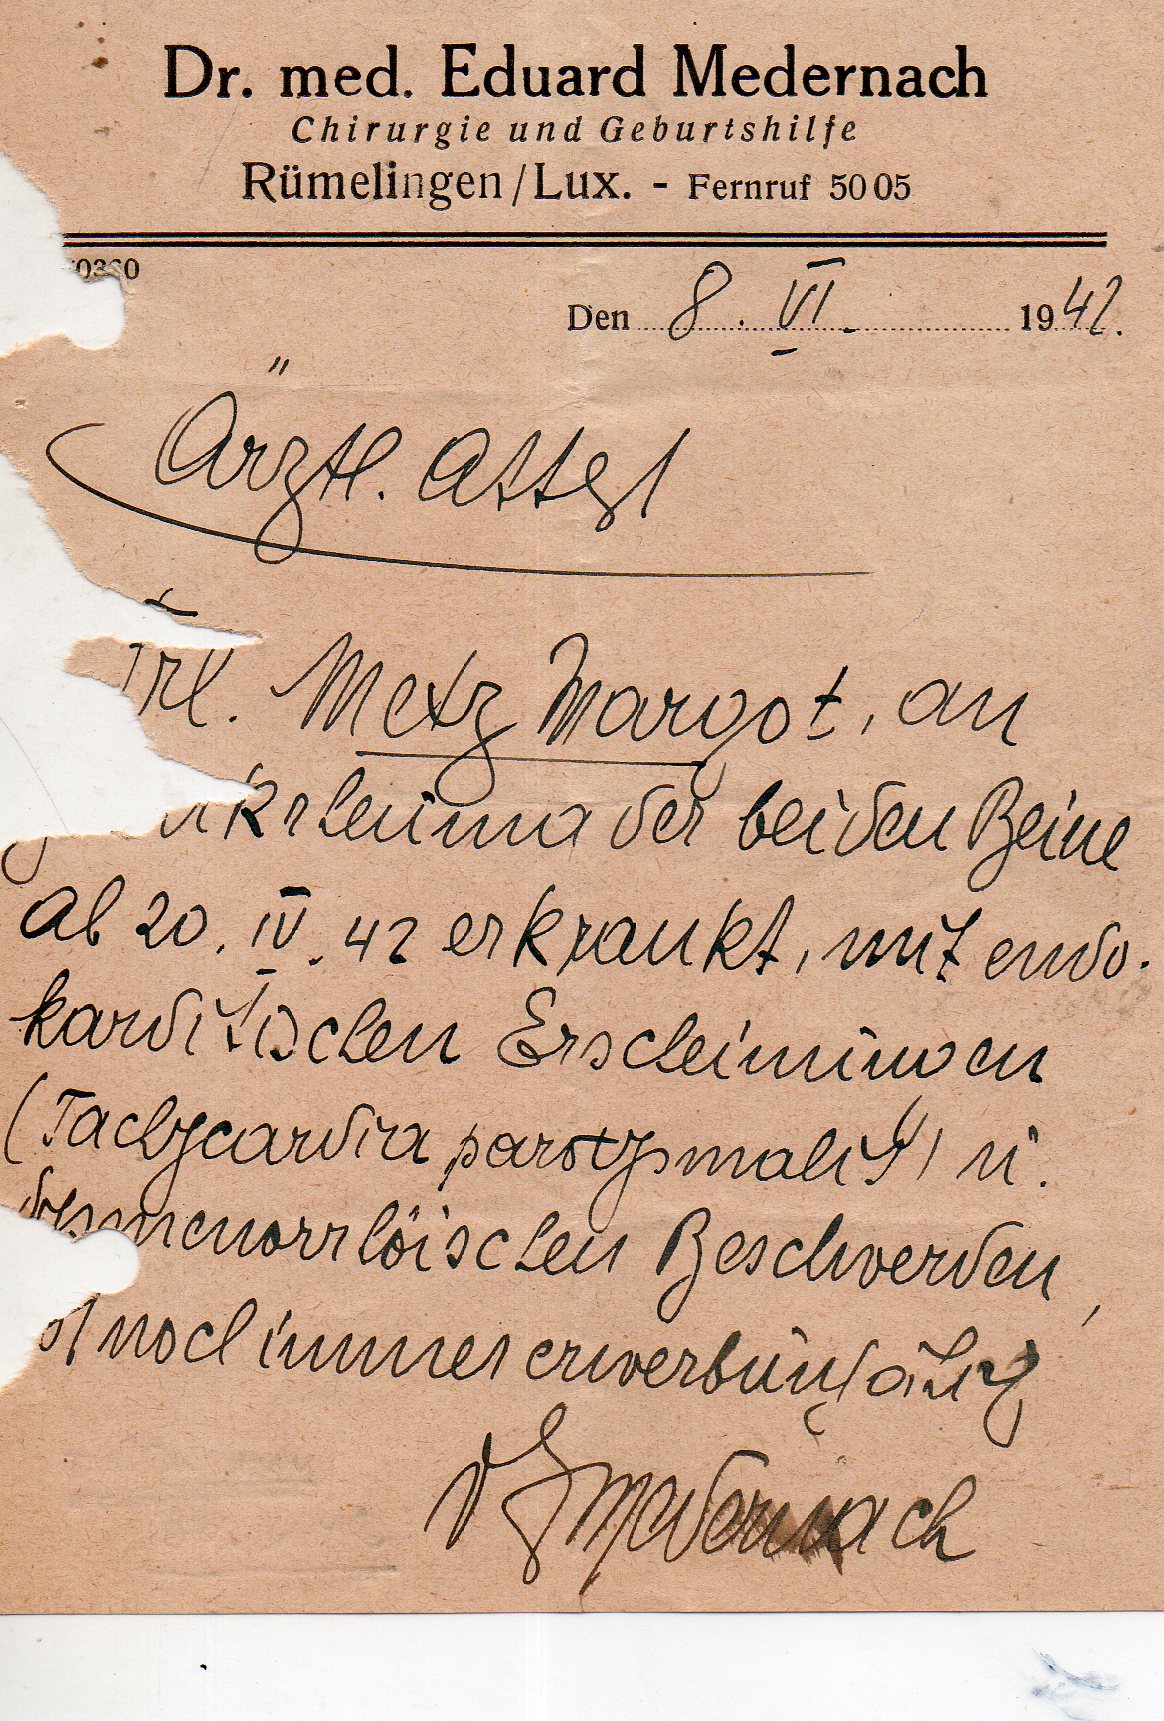 Dr. med. Eduard Medernach
Chirurgie und Geburtshilfe
Rümelingen/Lux. - Fernruf 5005
0360
Den 8. VI. 1942.
Ärztl. Attest
Frl. Metz Margot, an
der beiden Beine
ab 20. IV. 42 erkrankt, mit endo-
karditischen Erscheinungen
(Tachycardia paroxysmalis) u.
dysmenorrhöischen Beschwerden,
ist noch immer erwerbunfähig
Dr E Medernach